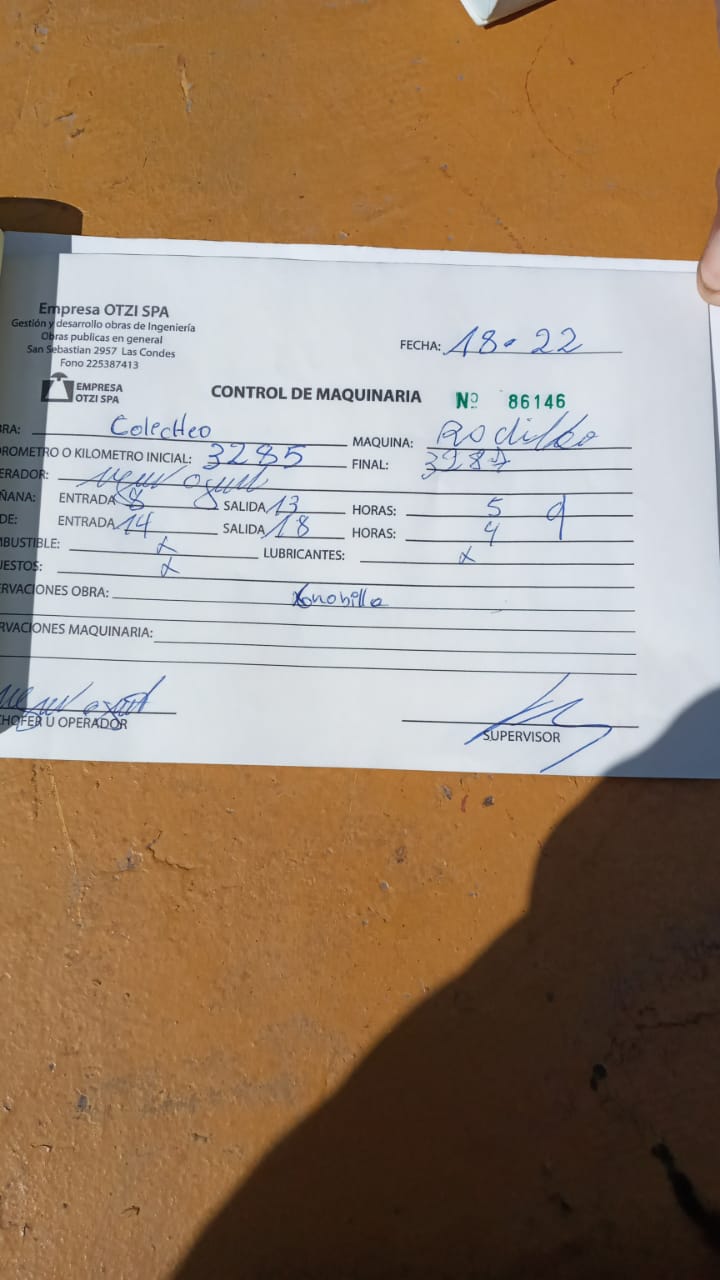 Empresa OTZI SPA
Gestión y desarrollo obras de Ingeniería
Obras publicas en general
San Sebastian 2957 Las Condes
Fono 225387413
FECHA: 18-22
EMPRESA
OTZI SPA
CONTROL DE MAQUINARIA
Nº 86146
BRA: Colectteo MAQUINA: Rodillo
OROMETRO O KILOMETRO INICIAL: 3285 FINAL: 3287
ERADOR:
ÑANA: ENTRADA 8 SALIDA 13 HORAS: 5 9
DE: ENTRADA 14 SALIDA 18 HORAS: 4
MBUSTIBLE: x LUBRICANTES: x
UESTOS: x
RVACIONES OBRA:
RVACIONES MAQUINARIA:
CHOFER U OPERADOR
SUPERVISOR